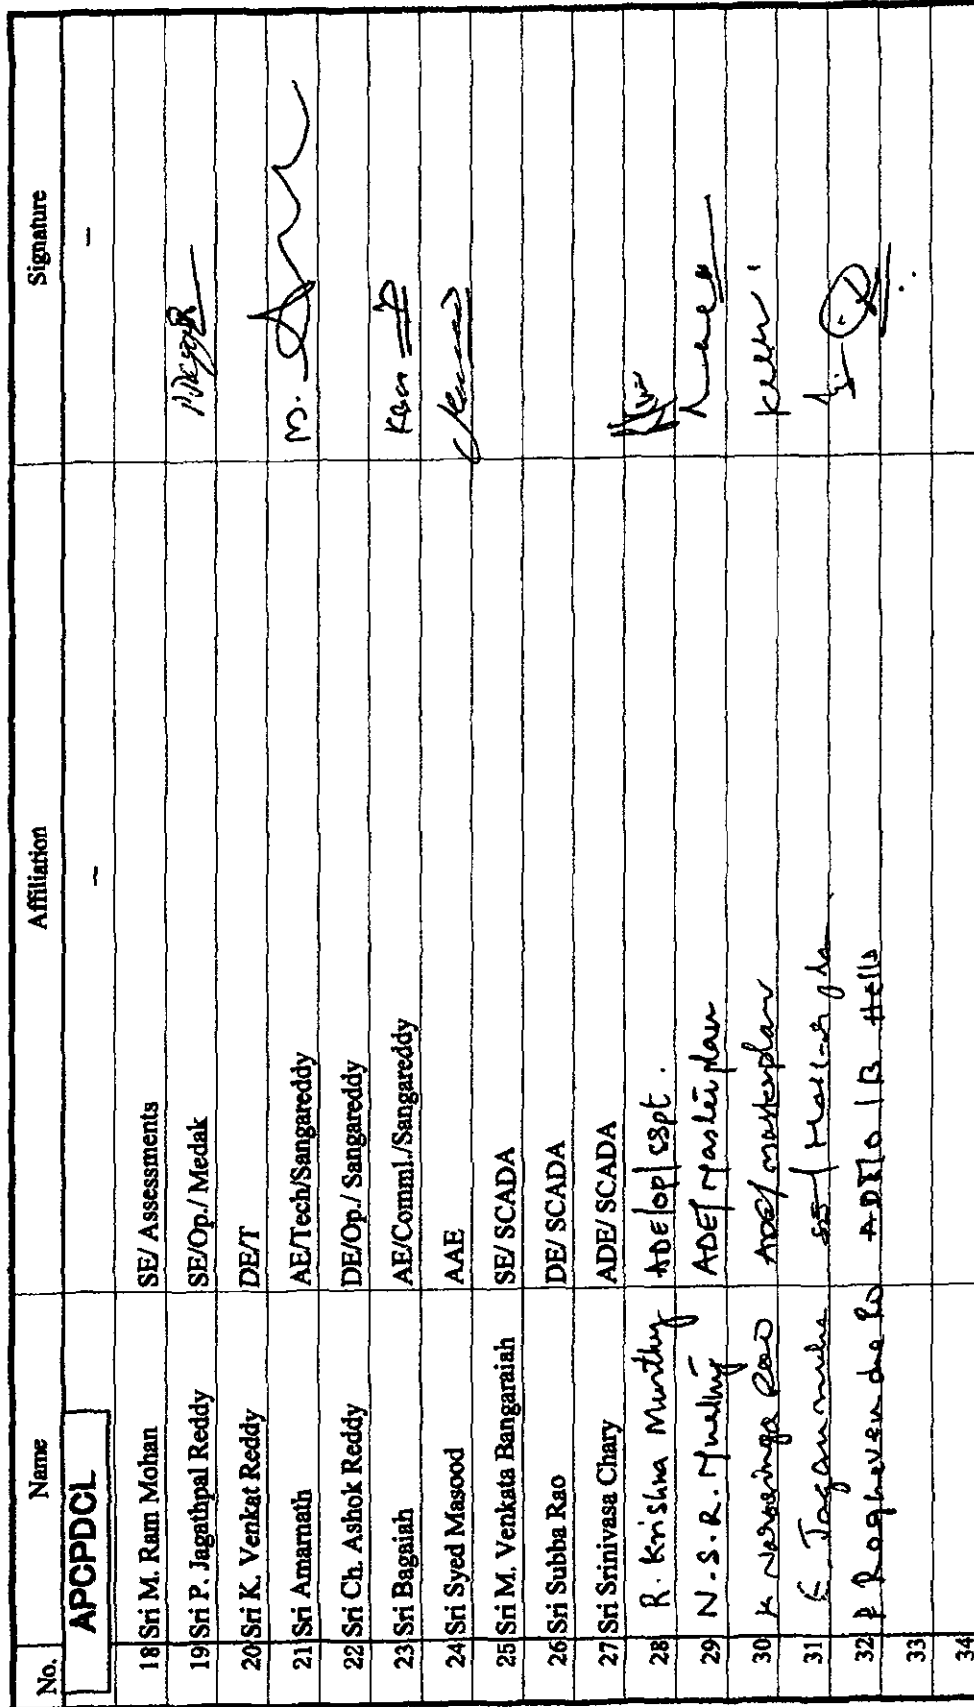 No. Name Affiliation Signature
APCPDCL - -
18 Sri M. Ram Mohan SE/ Assessments
19 Sri P. Jagathpal Reddy SE/Op./ Medak
20 Sri K. Venkat Reddy DE/T
21 Sri Amarnath AE/Tech/Sangareddy M.
22 Sri Ch. Ashok Reddy DE/Op./ Sangareddy
23 Sri Bagaiah AE/Comml./Sangareddy
24 Sri Syed Masood AAE
25 Sri M. Venkata Bangaraiah SE/ SCADA
26 Sri Subba Rao DE/ SCADA
27 Sri Srinivasa Chary ADE/ SCADA
28 R. Krishna Murthy ADE/op/
29 N.S.R. Murthy ADE/Masterplan
30 K Narasinga Rao ADE/masterplan
31
32 Raghavendra
33
34